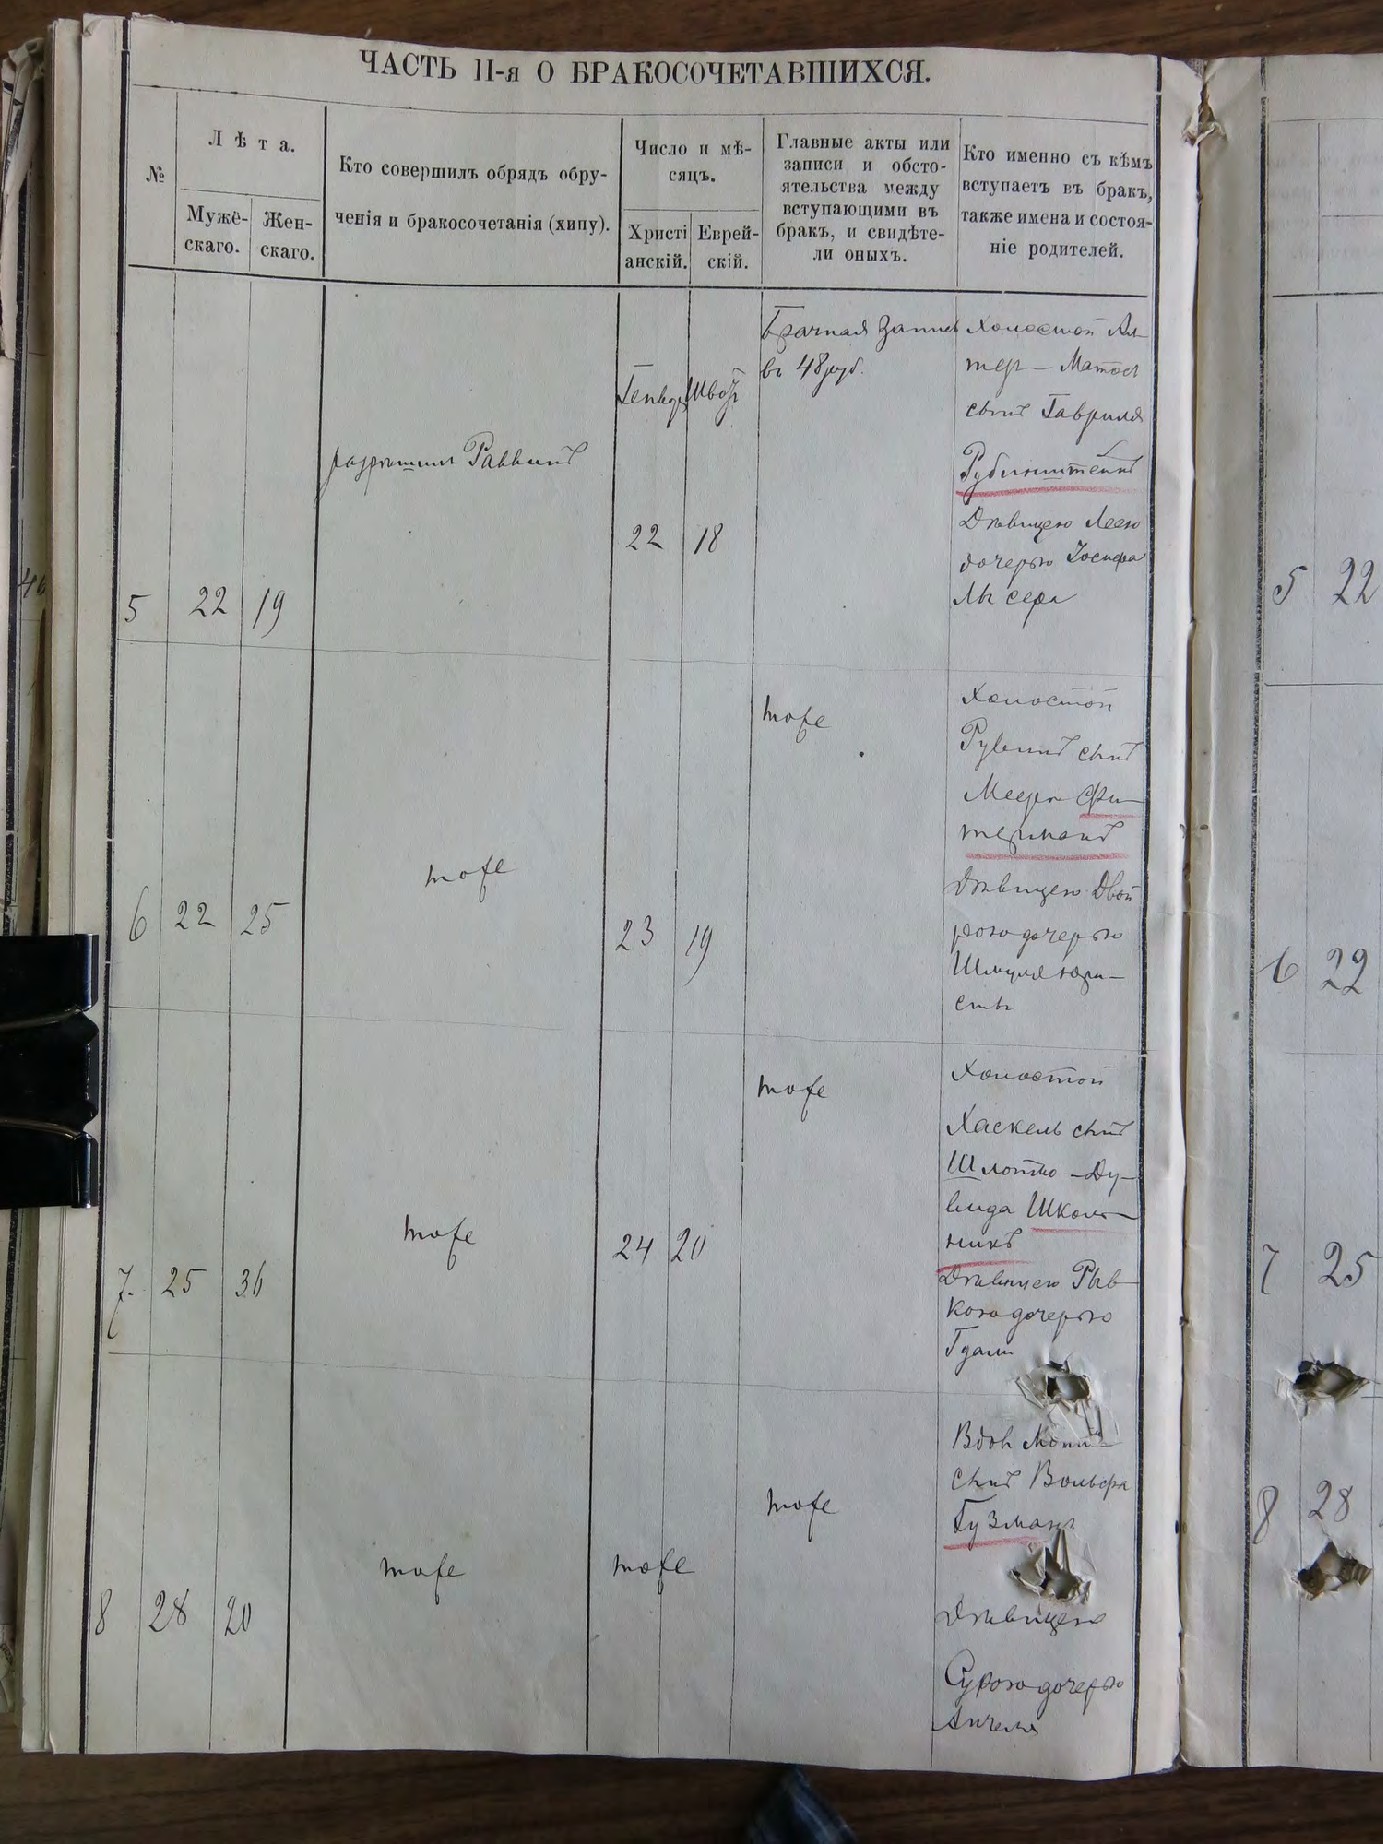 ЧАСТЬ II-я О БРАКОСОЧЕТАВШИХСЯ.
№
Лѣта.
Мужё-
скаго.
Жен-
скаго.
Кто совершилъ обрядъ обру-
ченія и бракосочетанія (хипу).
Число и мѣ-
сяцъ.
Христі
анскій.
Еврей-
скій.
Главные акты или
записи и обсто-
ятельства между
вступающими въ
бракъ, и свидѣте-
ли оныхъ.
Кто именно съ кѣмъ
вступаетъ въ бракъ,
также имена и состоя-
ніе родителей.
5
22
19
Раввинъ
22
18
Брачная запись
въ 48 руб.
Холостой Ал-
теръ - Матос
сынъ Гавриля
Рубинштейнъ
Дѣвицею Леею
дочерью Іосифа
6
22
25
тоже
23
19
тоже
Холостой
Рувинъ сынъ
Меера Фи-
терманъ
Дѣвицею Двой
рою дочерью
Шмуля
7.
25
36
тоже
24
20
тоже
Холостой
Хаскель сынъ
Шлоймо - Ду-
вида Школь-
никъ
Дѣвицею Рыв-
кою дочерью
8
28
20
тоже
тоже
тоже
Вдов
сынъ Вольфа
Гузманъ
Дѣвицею
Сурою дочерью
Анчеля
5 22
6 22
7 25
8 28